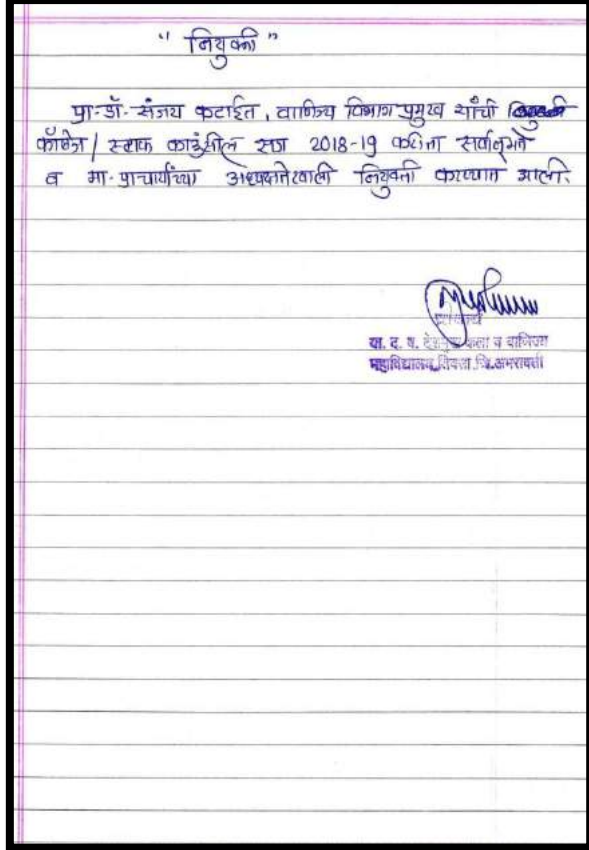 " नियुक्ती "
प्रा. डॉ. संजय कटाईत, वाणिज्य विभाग प्रमुख यांची
कॉलेज / स्टाफ काउंसील सत्र 2018-19 करीता सर्वानुमते
व मा. प्राचार्यांच्या अध्यक्षतेखाली नियुक्ती करण्यात आली.
प्राचार्य
या. द. व. देशमुख कला व वाणिज्य
महाविद्यालय, तिवसा जि.अमरावती